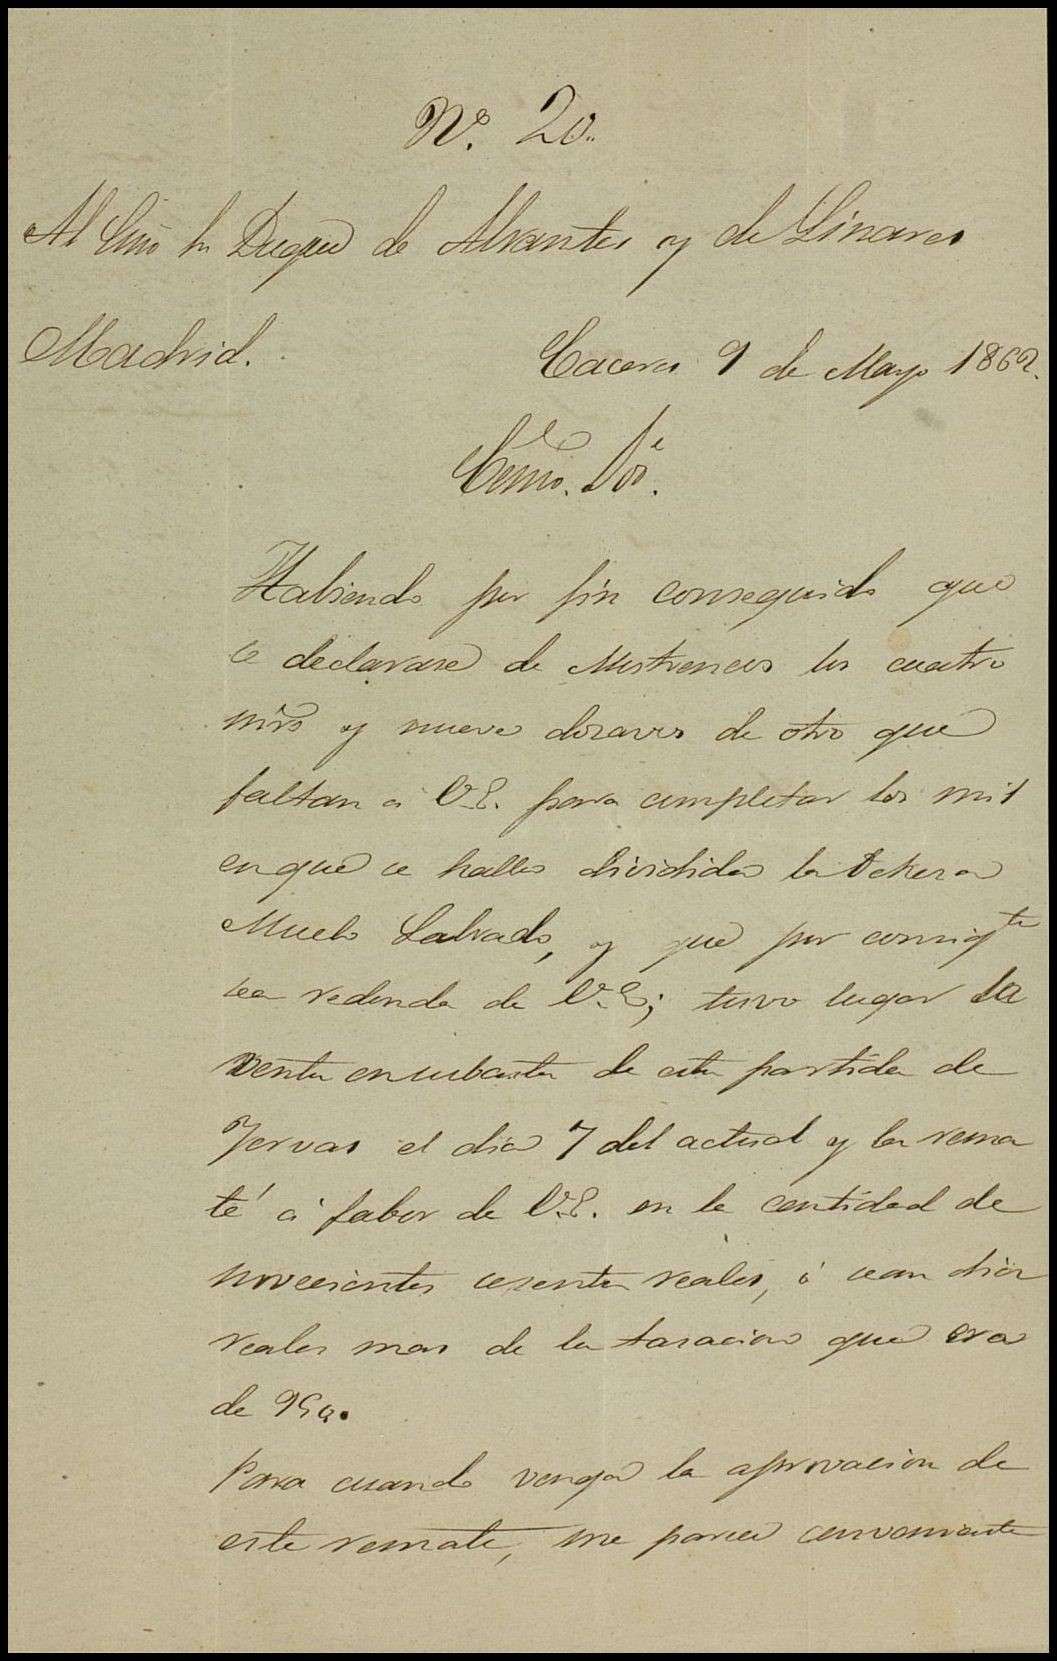 Nº. 20.
Al Exmo Sr Duque de Abrantes y de Linares
Madrid.
Caceres 9 de Mayo 1862.
Exmo. Sor.
Habiendo por fin conseguido que
se declarase de Mostrencos los cuatro
mrs y nueve dozavos de otro que
faltan a V.E. para completar los mil
en que se halla dividida la Dehesa
Muelo Labrado, y que por consigte
sea redonda de V.E; tuvo lugar la
venta en subasta de esta partida de
Yervas el dia 7 del actual y la rema
té á fabor de V.E. en la cantidad de
novecientos sesenta reales, ó sean diez
reales mas de la tasacion que era
de 950.
Para cuando venga la aprovacion de
este remate, me parece conveniente